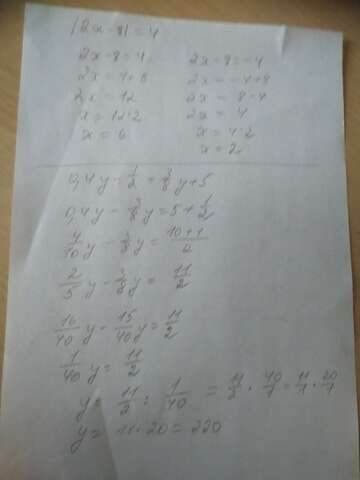 |2x-8|=4
2x-8=4 2x-8=-4
2x=4+8 2x=-4+8
2x=12 2x=8-4
x=12:2 2x=4
x=6 x=4:2
x=2
0,4y-1/2=3/8y+5
0,4y-3/8y=5+1/2
4/10y-3/8y=10+1/2
2/5y-3/8y=11/2
16/40y-15/40y=11/2
1/40y=11/2
y=11/2:1/40=11/2·40/1=11/1·20/1
y=11·20=220